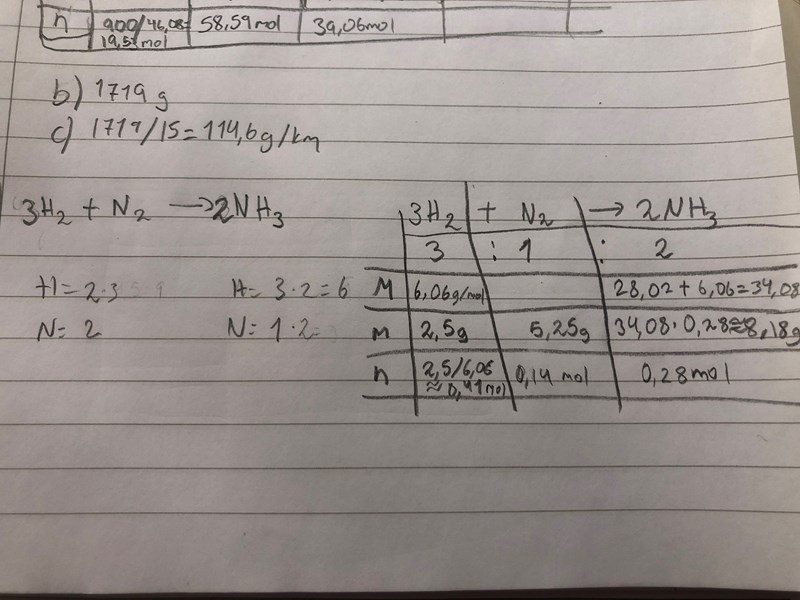 n 900/46,08= 58,59mol 39,06mol
19,5 mol
b) 1719 g
c) 1719/15=114,6g/km
3H₂ + N₂ → 2NH₃
H= 2·3 H= 3·2=6
N= 2 N= 1·2=
3H₂ + N₂ → 2NH₃
3 : 1 : 2
M 6,06g/mol 28,02 + 6,06=34,08
m 2,5g 5,25g 34,08·0,28≈8,18g
n 2,5/6,06 0,14 mol 0,28mol
≈ 0,41mol